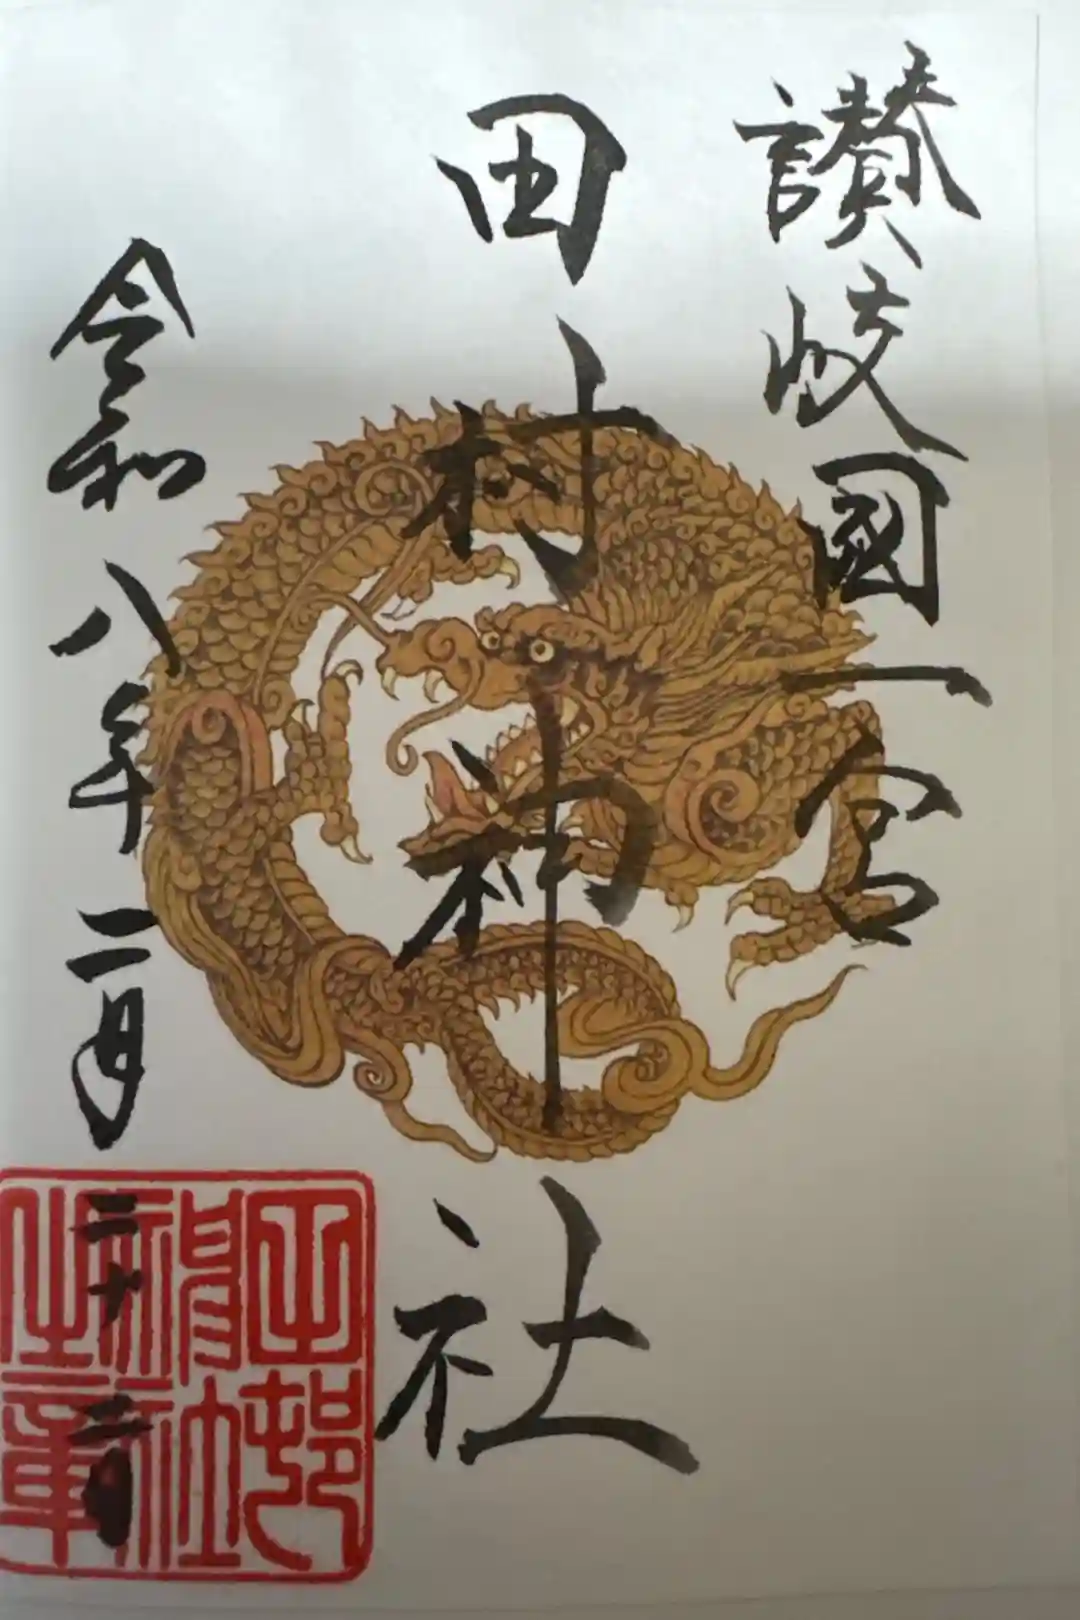 讃岐國一宮
田村神社
令和八年二月二十二日
田邨神社之章